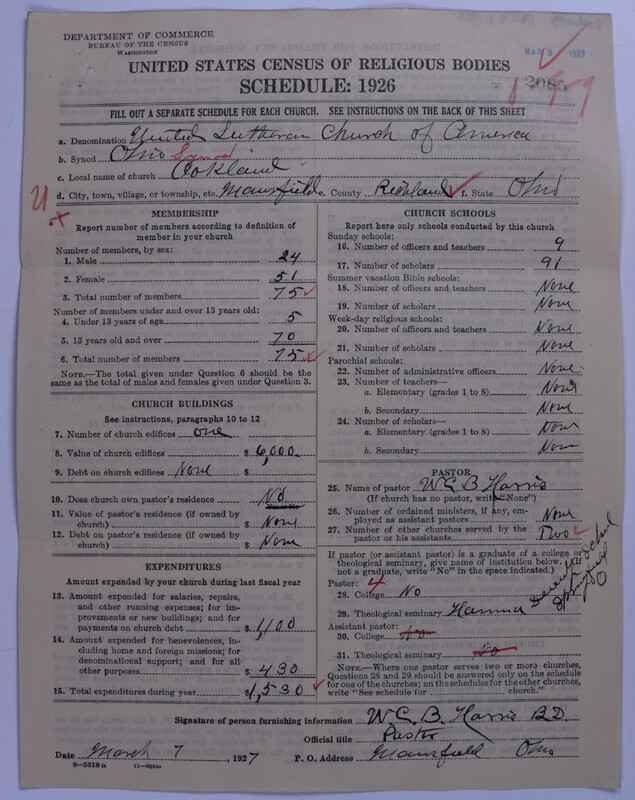 DEPARTMENT OF COMMERCE
BUREAU OF THE CENSUS
WASHINGTON
MAR 9 1927
UNITED STATES CENSUS OF RELIGIOUS BODIES
SCHEDULE: 1926
2085
FILL OUT A SEPARATE SCHEDULE FOR EACH CHURCH. SEE INSTRUCTIONS ON THE BACK OF THIS SHEET
a. Denomination United Lutheran Church of America
b. Synod Ohio Synod
c. Local name of church Oakland
d. City, town, village, or township, etc. Mansfield e. County Richland f. State Ohio
MEMBERSHIP
Report number of members according to definition of
member in your church
Number of members, by sex:
1. Male 24
2. Female 51
3. Total number of members 75
Number of members under and over 13 years old:
4. Under 13 years of age 5
5. 13 years old and over 70
6. Total number of members 75
NOTE.—The total given under Question 6 should be
same as the total of males and females given under Question 3.
CHURCH BUILDINGS
See instructions, paragraphs 10 to 12
7. Number of church edifices one
8. Value of church edifices $ 6,000.
9. Debt on church edifices None $
10. Does church own pastor's residence No
11. Value of pastor's residence (if owned by
church) $ None
12. Debt on pastor's residence (if owned by
church) $ None
EXPENDITURES
Amount expended by your church during last fiscal year
13. Amount expended for salaries, repairs,
and other running expenses; for im-
provements or new buildings; and for
payments on church debt $ 1,100
14. Amount expended for benevolences, in-
cluding home and foreign missions; for
denominational support; and for all
other purposes $ 430
15. Total expenditures during year $ 1,530
CHURCH SCHOOLS
Report here only schools conducted by this church
Sunday schools:
16. Number of officers and teachers 9
17. Number of scholars 91
Summer vacation Bible schools:
18. Number of officers and teachers None
19. Number of scholars None
Week-day religious schools:
20. Number of officers and teachers None
21. Number of scholars None
Parochial schools:
22. Number of administrative officers None
23. Number of teachers—
a. Elementary (grades 1 to 8) None
b. Secondary None
24. Number of scholars—
a. Elementary (grades 1 to 8) None
b. Secondary None
PASTOR
25. Name of pastor W C B Harris
(If church has no pastor, write "None")
26. Number of ordained ministers, if any, em-
ployed as assistant pastors None
27. Number of other churches served by the
pastor or his assistants Two
If pastor (or assistant pastor) is a graduate of a college or
theological seminary, give name of institution below. (If
not a graduate, write "No" in the space indicated.)
Pastor: 4
28. College No
29. Theological seminary Hamma
Springfield
O
Assistant pastor:
30. College No
31. Theological seminary No
NOTE.—Where one pastor serves two or more churches,
Questions 28 and 29 should be answered only on the schedule
for one of the churches; on the schedules for the other churches,
write "See schedule for church."
Signature of person furnishing information W. C. B. Harris B.D.
Official title Pastor
Date March 7, 1927 P. O. Address Mansfield Ohio
8-5318a 11-9624